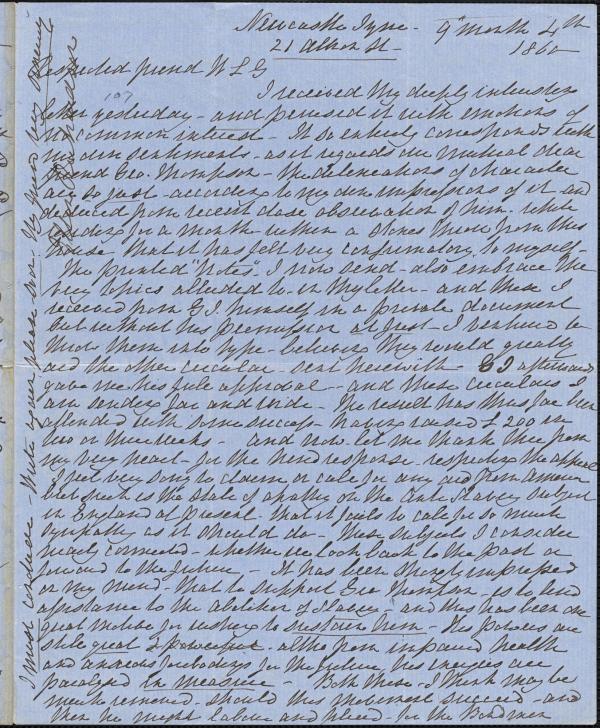 Newcastle Tyne - 9th month 4th
21 Albion St - 1860
Respected friend W L G
107
I received thy deeply interesting
letter yesterday - and perused it with emotions of
no common interest - It so entirely corresponds with
my own sentiments - as it regards our mutual dear
friend Geo. Thompson - the delineations of character
are so just - according to my own impressions of it - and
deduced from recent close observation of him - while
residing for a month within a stones throw from this
house - that it has felt very confirmatory to myself -
The printed "Notes" I now send - also embrace the
very topics alluded to in thy letter - and these I
received from G T. himself in a private document
but without his permission at first - I ventured to
throw them into type - believing they would greatly
aid the other circular sent herewith - G T afterwards
gave me his full approval - and these circulars I
am sending far and wide - The result has thus far been
attended with some success - having raised £200 in
two or three weeks - and now let me thank thee from
my very heart - for the kind response - respecting the appeal
I feel very sorry to claim or call for any aid from America
but such is the state of apathy on the Anti Slavery subject
in England at present - that it fails to call for so much
sympathy as it should do - These subjects I consider
nearly connected - whether we look back to the past or
forward to the future - It has been strongly impressed
on my mind - that to support Geo Thompson - is to lend
assistance to the abolition of Slavery - and this has been one
great motive for wishing to sustain him - His powers are
still great & powerful - altho from impaired health
and anxious forebodings for the future, his energies are
paralyzed in measure - Both these - I think may be
much removed - should this movement succeed - and
then he might labour and plead - for the Bondman
I must conclude - Write again please soon. Thy friend very truly